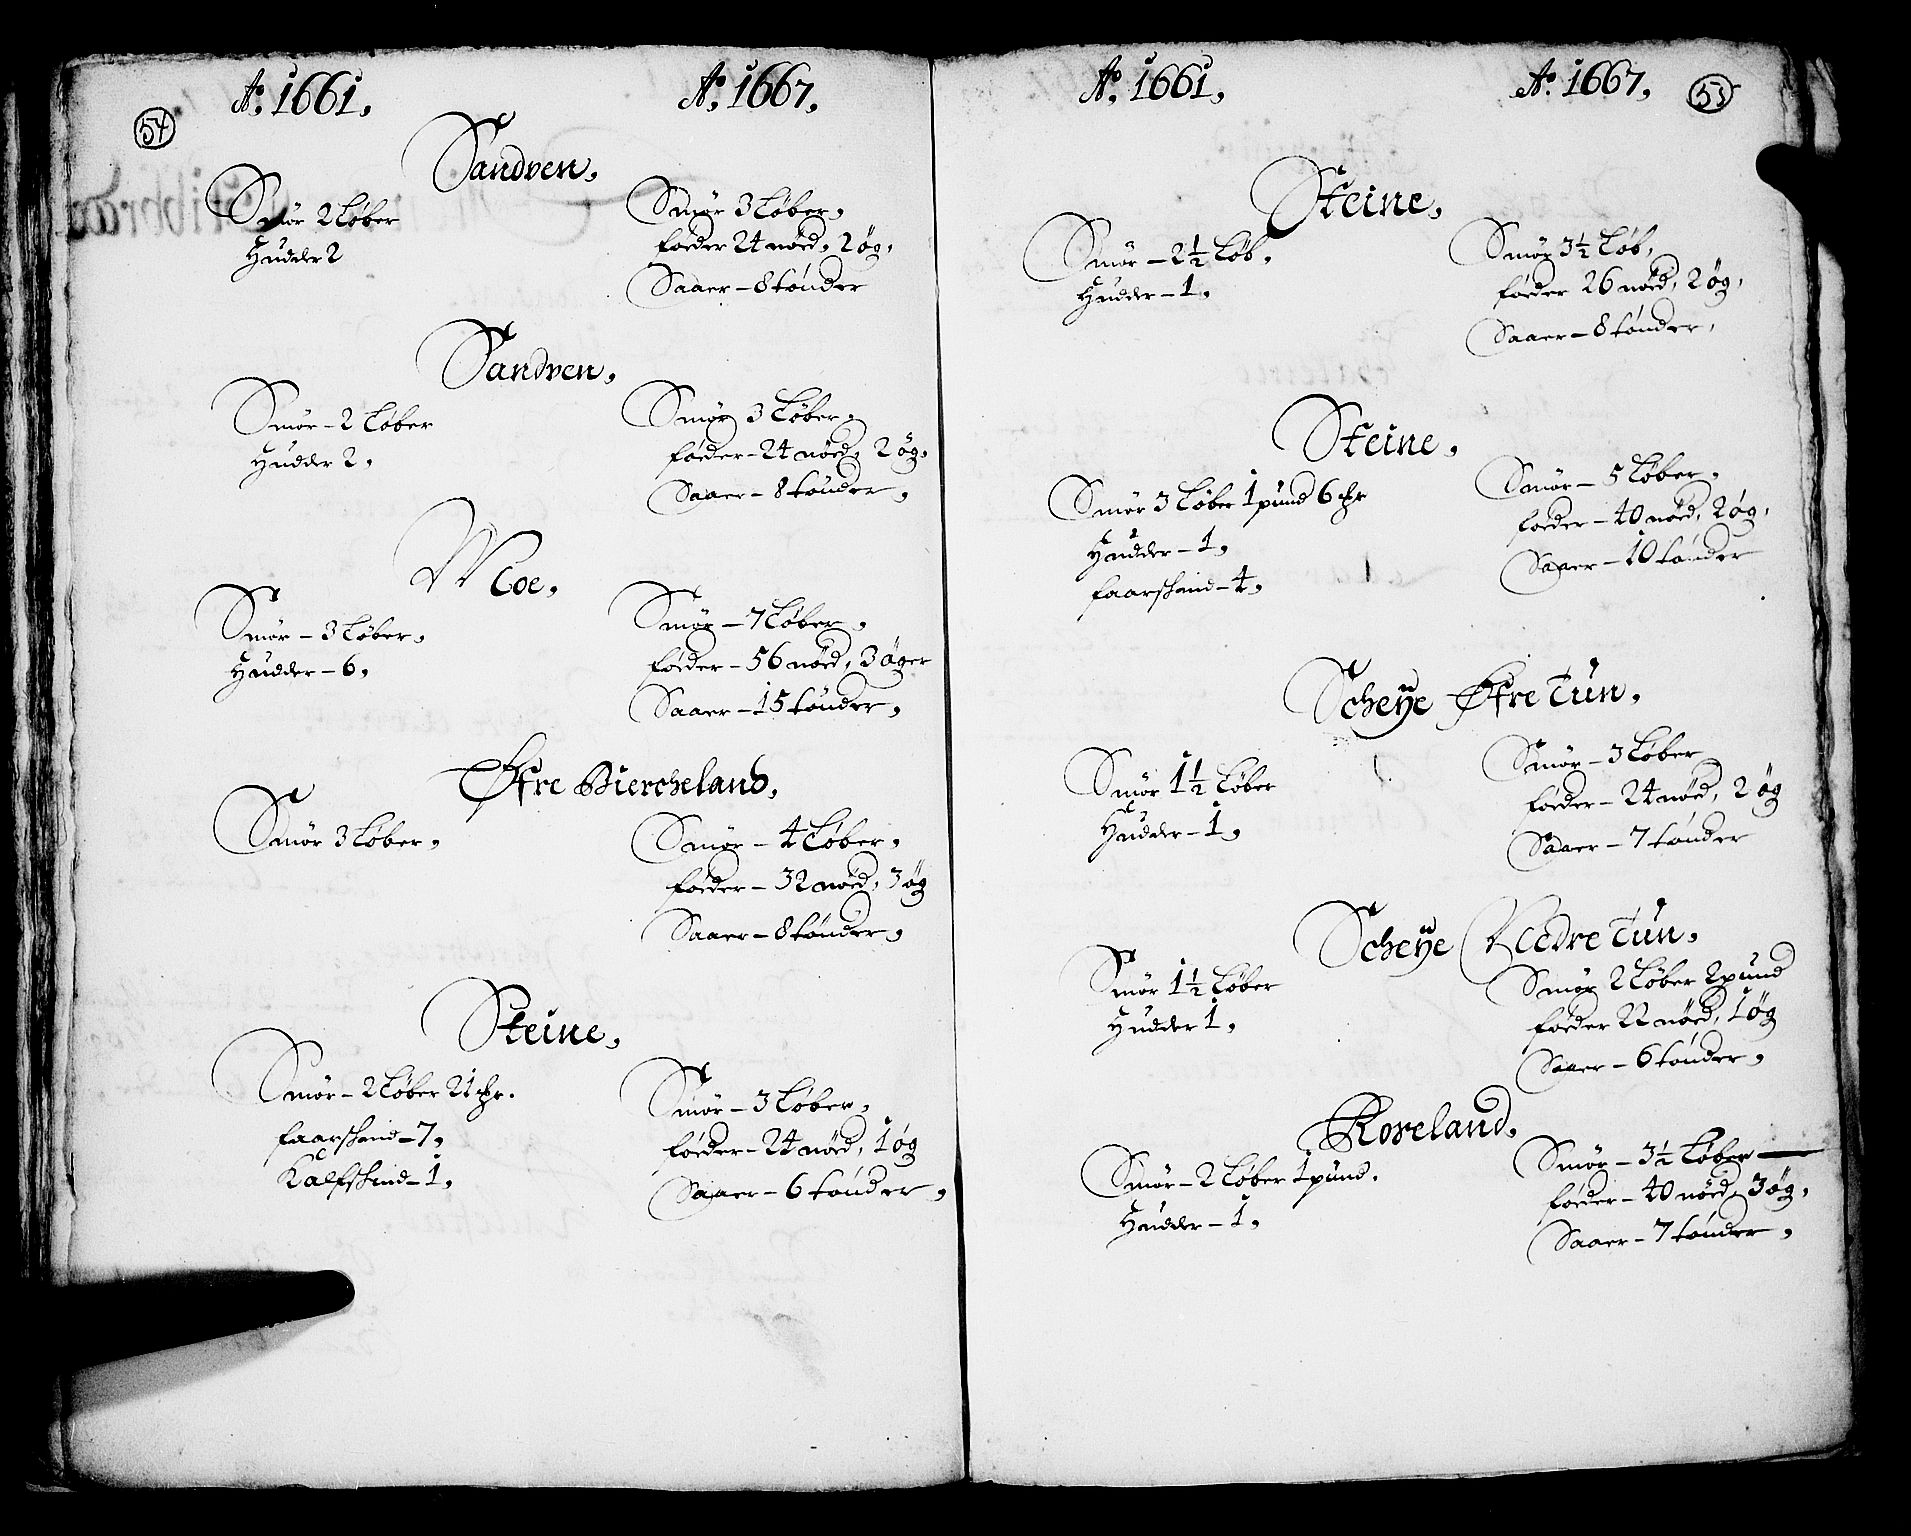 54
Ao. 1661, Ao. 1667,
Sandven,
Smör 2 Løber
Hudder 2
Smör 3 Løber,
føeder 24 nöed, 2 øg,
Saaer – 8 tønder
Sandven,
Smör – 2 Løber
Hudder 2,
Smör 3 Løber,
føeder – 24 nöed, 2 øg,
Saaer – 8 tønder,
Moe,
Smör – 3 Løber,
Hudder – 6,
Smör – 7 Løber,
føeder – 56 nöed, 3 øger
Saaer – 15 tønder,
Øfre Biercheland,
Smör 3 Løber,
Smör – 4 Løber,
føeder – 32 nöed, 3 øg
Saaer – 8 tønder,
Steine,
Smör – 2 Løber 21
faarskind – 7,
Kalfskind – 1,
Smör – 3 Løber,
føeder – 24 nöed, 1 øg
Saaer – 6 tønder,
Ao. 1661, Ao. 1667,
Steine,
Smör – 2½ Løb,
Hudder – 1,
Smör 3½ Løb,
føeder 26 nöed, 2 øg,
Saaer – 8 tønder,
Steine,
Smör 3 Løber 1 pund 6
Hudder – 1,
faarskind – 4,
Smör – 5 Løber,
føeder – 40 nöed, 2 øg,
Saaer – 10 tønder
Scheÿe Øfre Tun,
Smör 1½ Løber
Hudder – 1,
Smör – 3 Løber
føeder – 24 nöed, 2 øg
Saaer – 7 tønder
Scheÿe Nedre Tun,
Smör 1½ Løber
Hudder 1,
Smör 2 Løber 2 pund
føeder 22 nöed, 1 øg
Saaer – 6 tønder,
Roveland,
Smör – 2 Løber 1 pund,
Hudder – 1,
Smör – 3½ Løber
føeder – 40 nöed, 3 øg,
Saaer – 7 tønder,